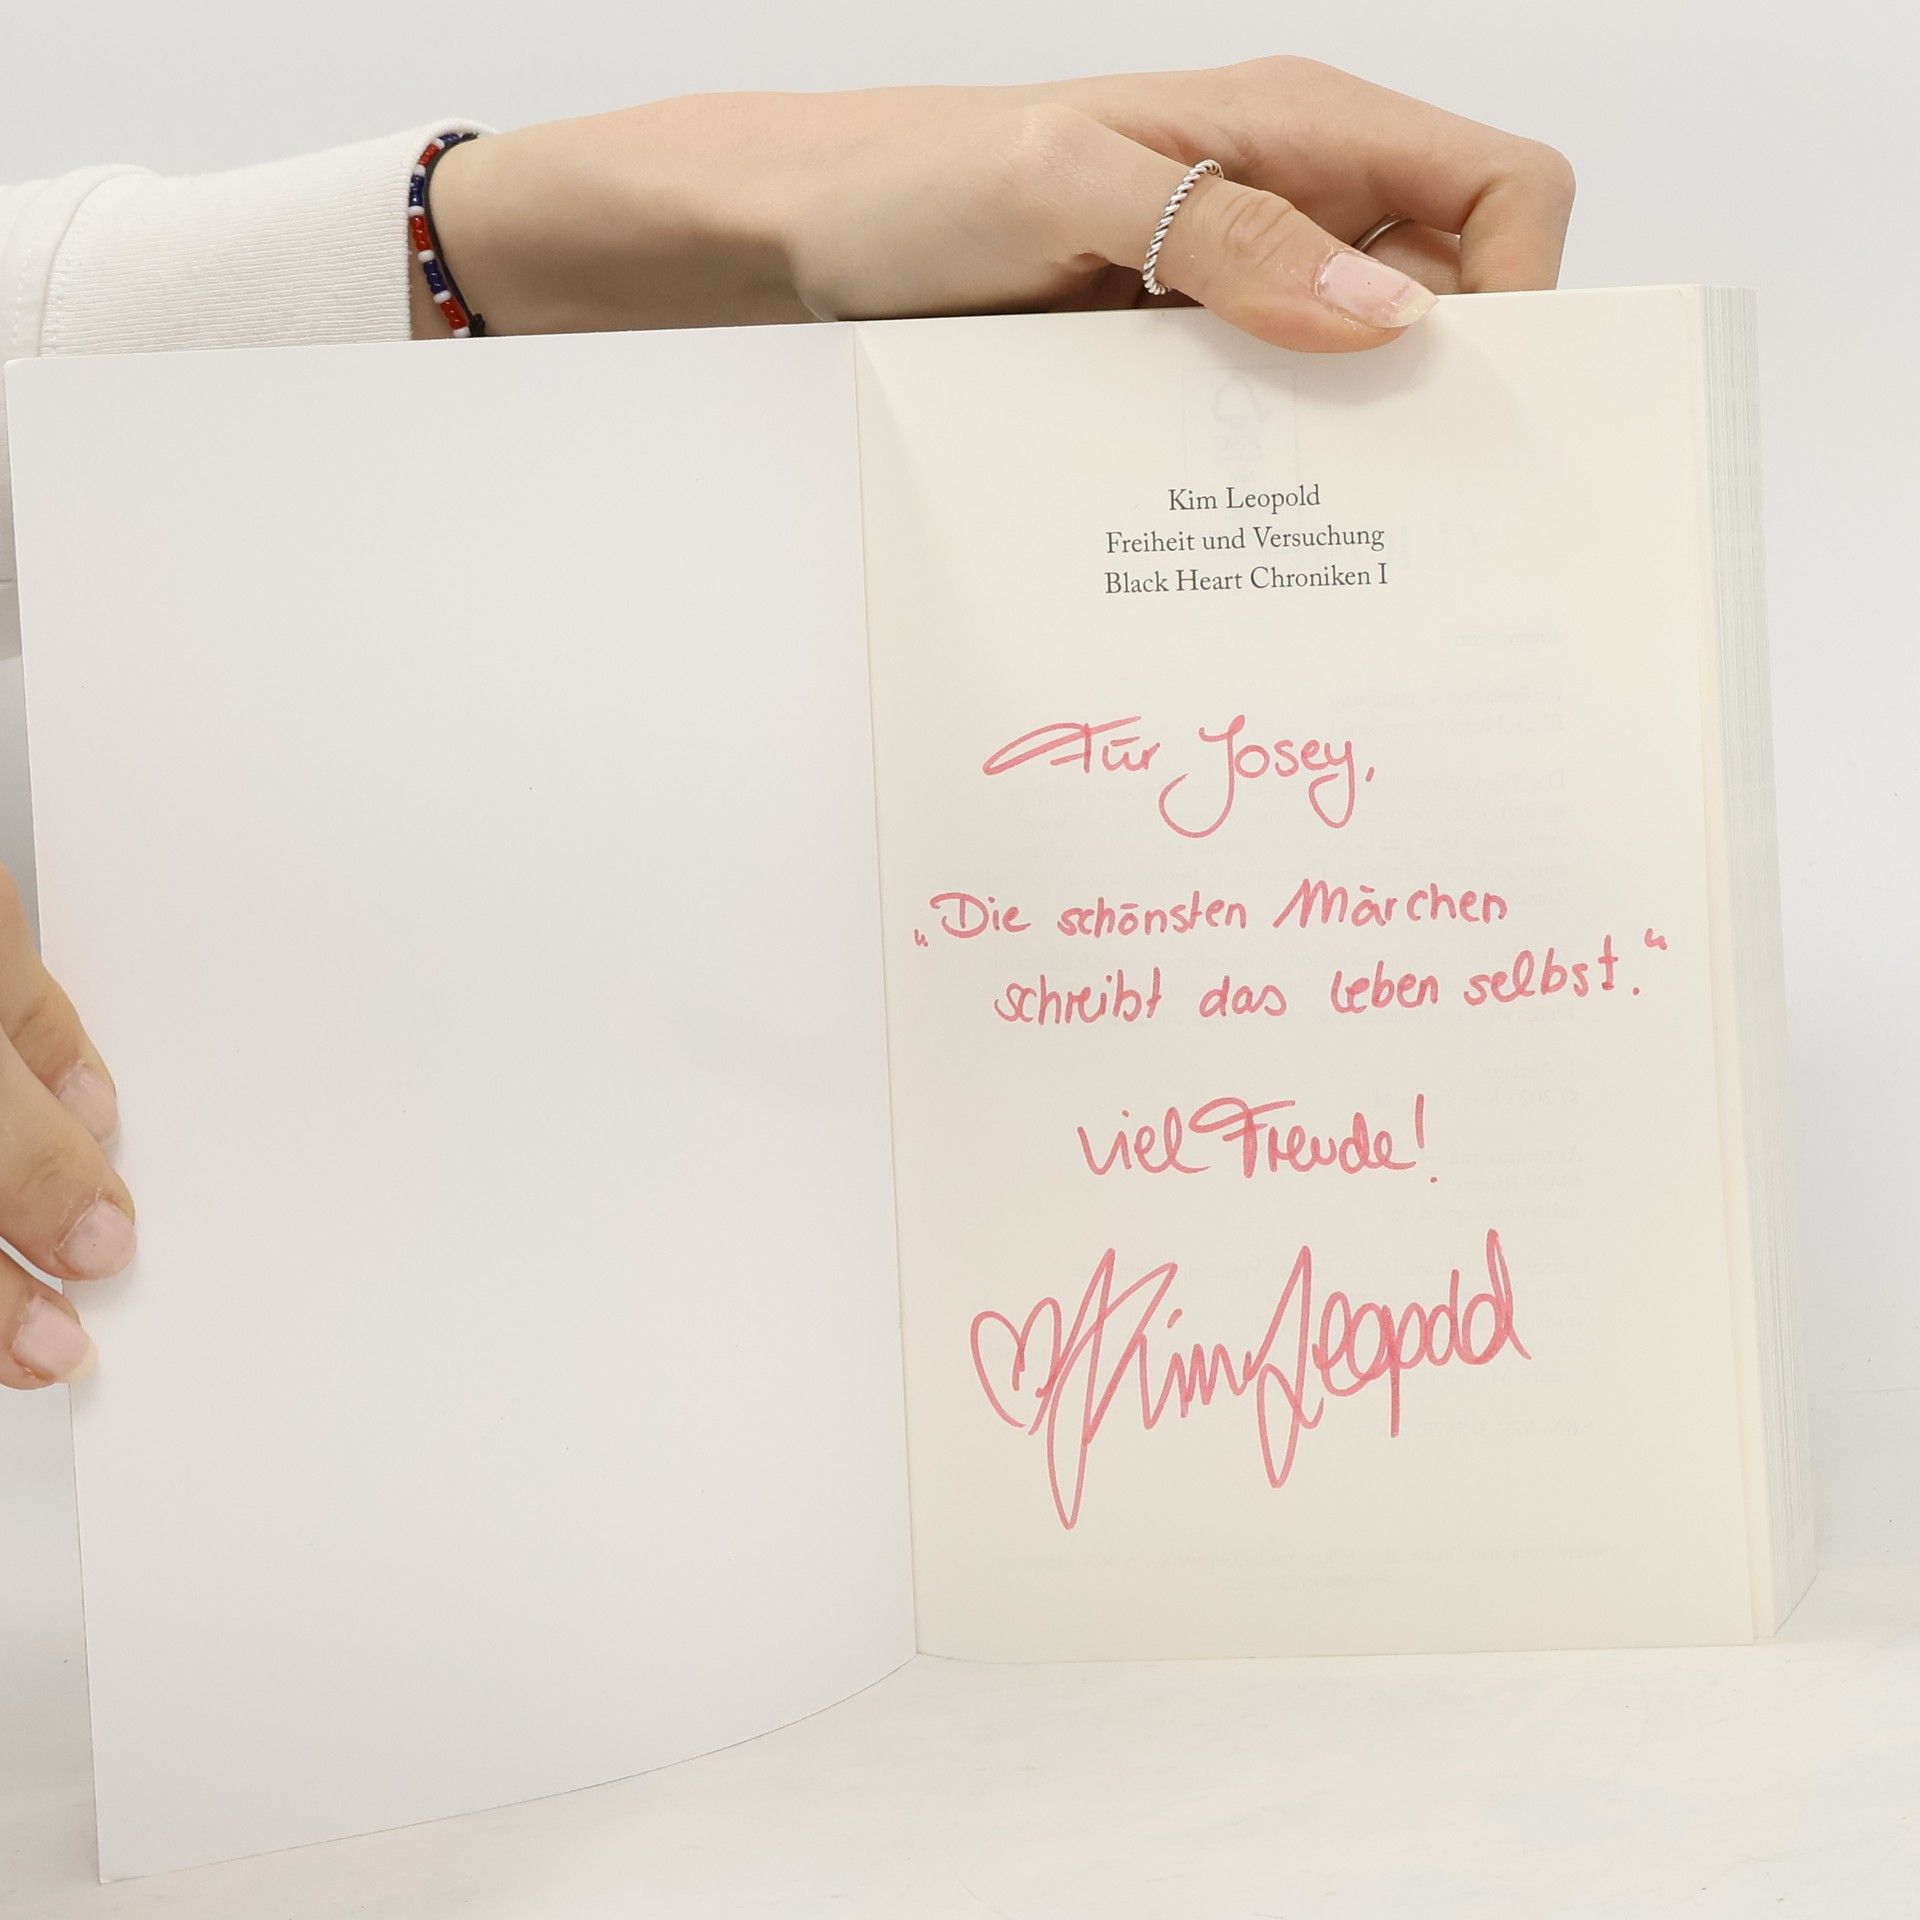 Kim Leopold
Freiheit und Versuchung
Black Heart Chroniken I
Für Josey,
„Die schönsten Märchen
schreibt das Leben selbst.“
Viel Freude!
♡ Kim Leopold